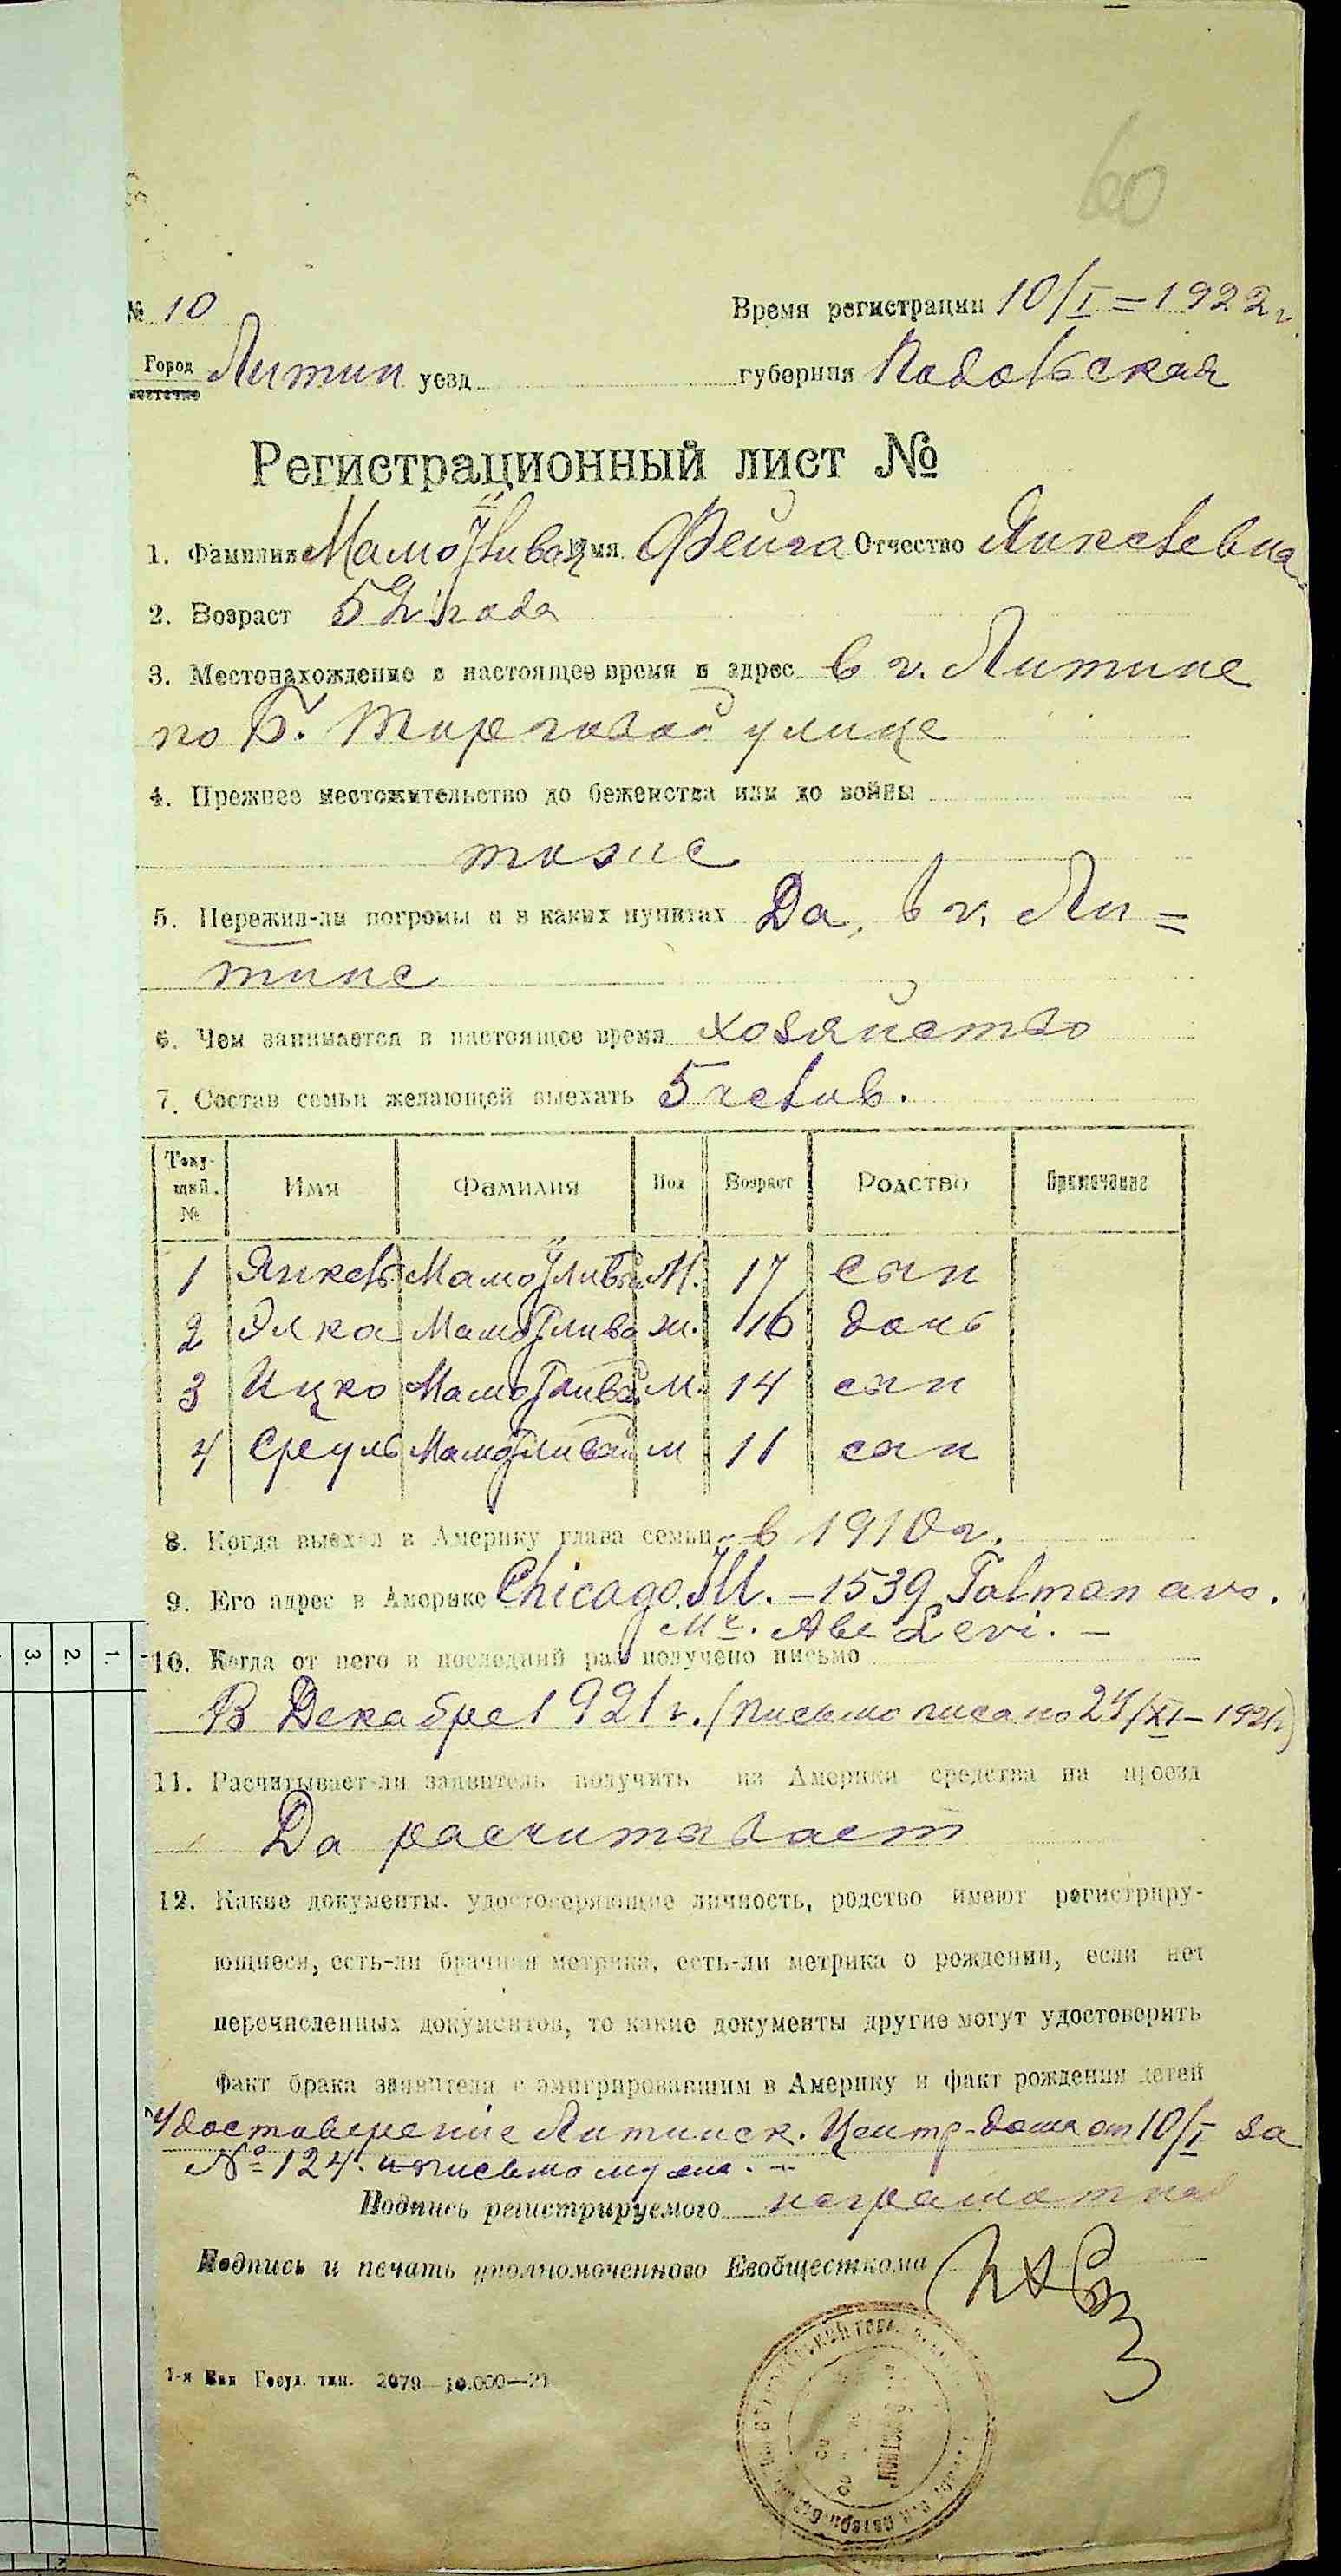 60
№ 10
Время регистрации 10/I = 1922 г
Город Литин уезд губерния Подольская
местечко
Регистрационный лист №
1. Фамилия Имя Фейга Отчество Янкелевна
2. Возраст 52 года
3. Местонахождение в настоящее время и адрес в г. Литине
по Б. Торговой улице
4. Прежнее местожительство до беженства или до войны
тоже
5. Пережил-ли погромы и в каких пунктах Да, в г. Ли=
тине
6. Чем занимается в настоящее время хозяйство
7. Состав семьи желающей выехать 5 челов.
Теку-щий. № Имя Фамилия Пол Возраст Родство Примечание
1 Янкель М. 17 сын
2 Элка ж. 16 дочь
3 Ицко М. 14 сын
4 Сруль м 11 сын
8. Когда выехал в Америку глава семьи в 1910 г.
9. Его адрес в Америке Chicago. Ill. – 1539 Talman ave.
Mr. Abe Levi. –
10. Когда от него в последний раз получено письмо
В Декабре 1921 г. (письмо писано 24/XI – 1921)
11. Расчитывает-ли заявитель получить из Америки средства на проезд
Да расчитывает
12. Какие документы. удостоверяющие личность, родство имеют регистриру-
ющиеся, есть-ли брачная метрика, есть-ли метрика о рождении, если нет
перечисленных документов, то какие документы другие могут удостоверить
факт брака заявителя с эмигрировавшим в Америку и факт рождения детей
Удостоверение Литинск. Центр-дома от 10/I за
№ 124. и письмо мужа. –
Подпись регистрируемого неграмотная
Подпись и печать уполномоченного Евобщесткома
1-я Госуд. тип. 2079—10.000—21
1.
2.
3.